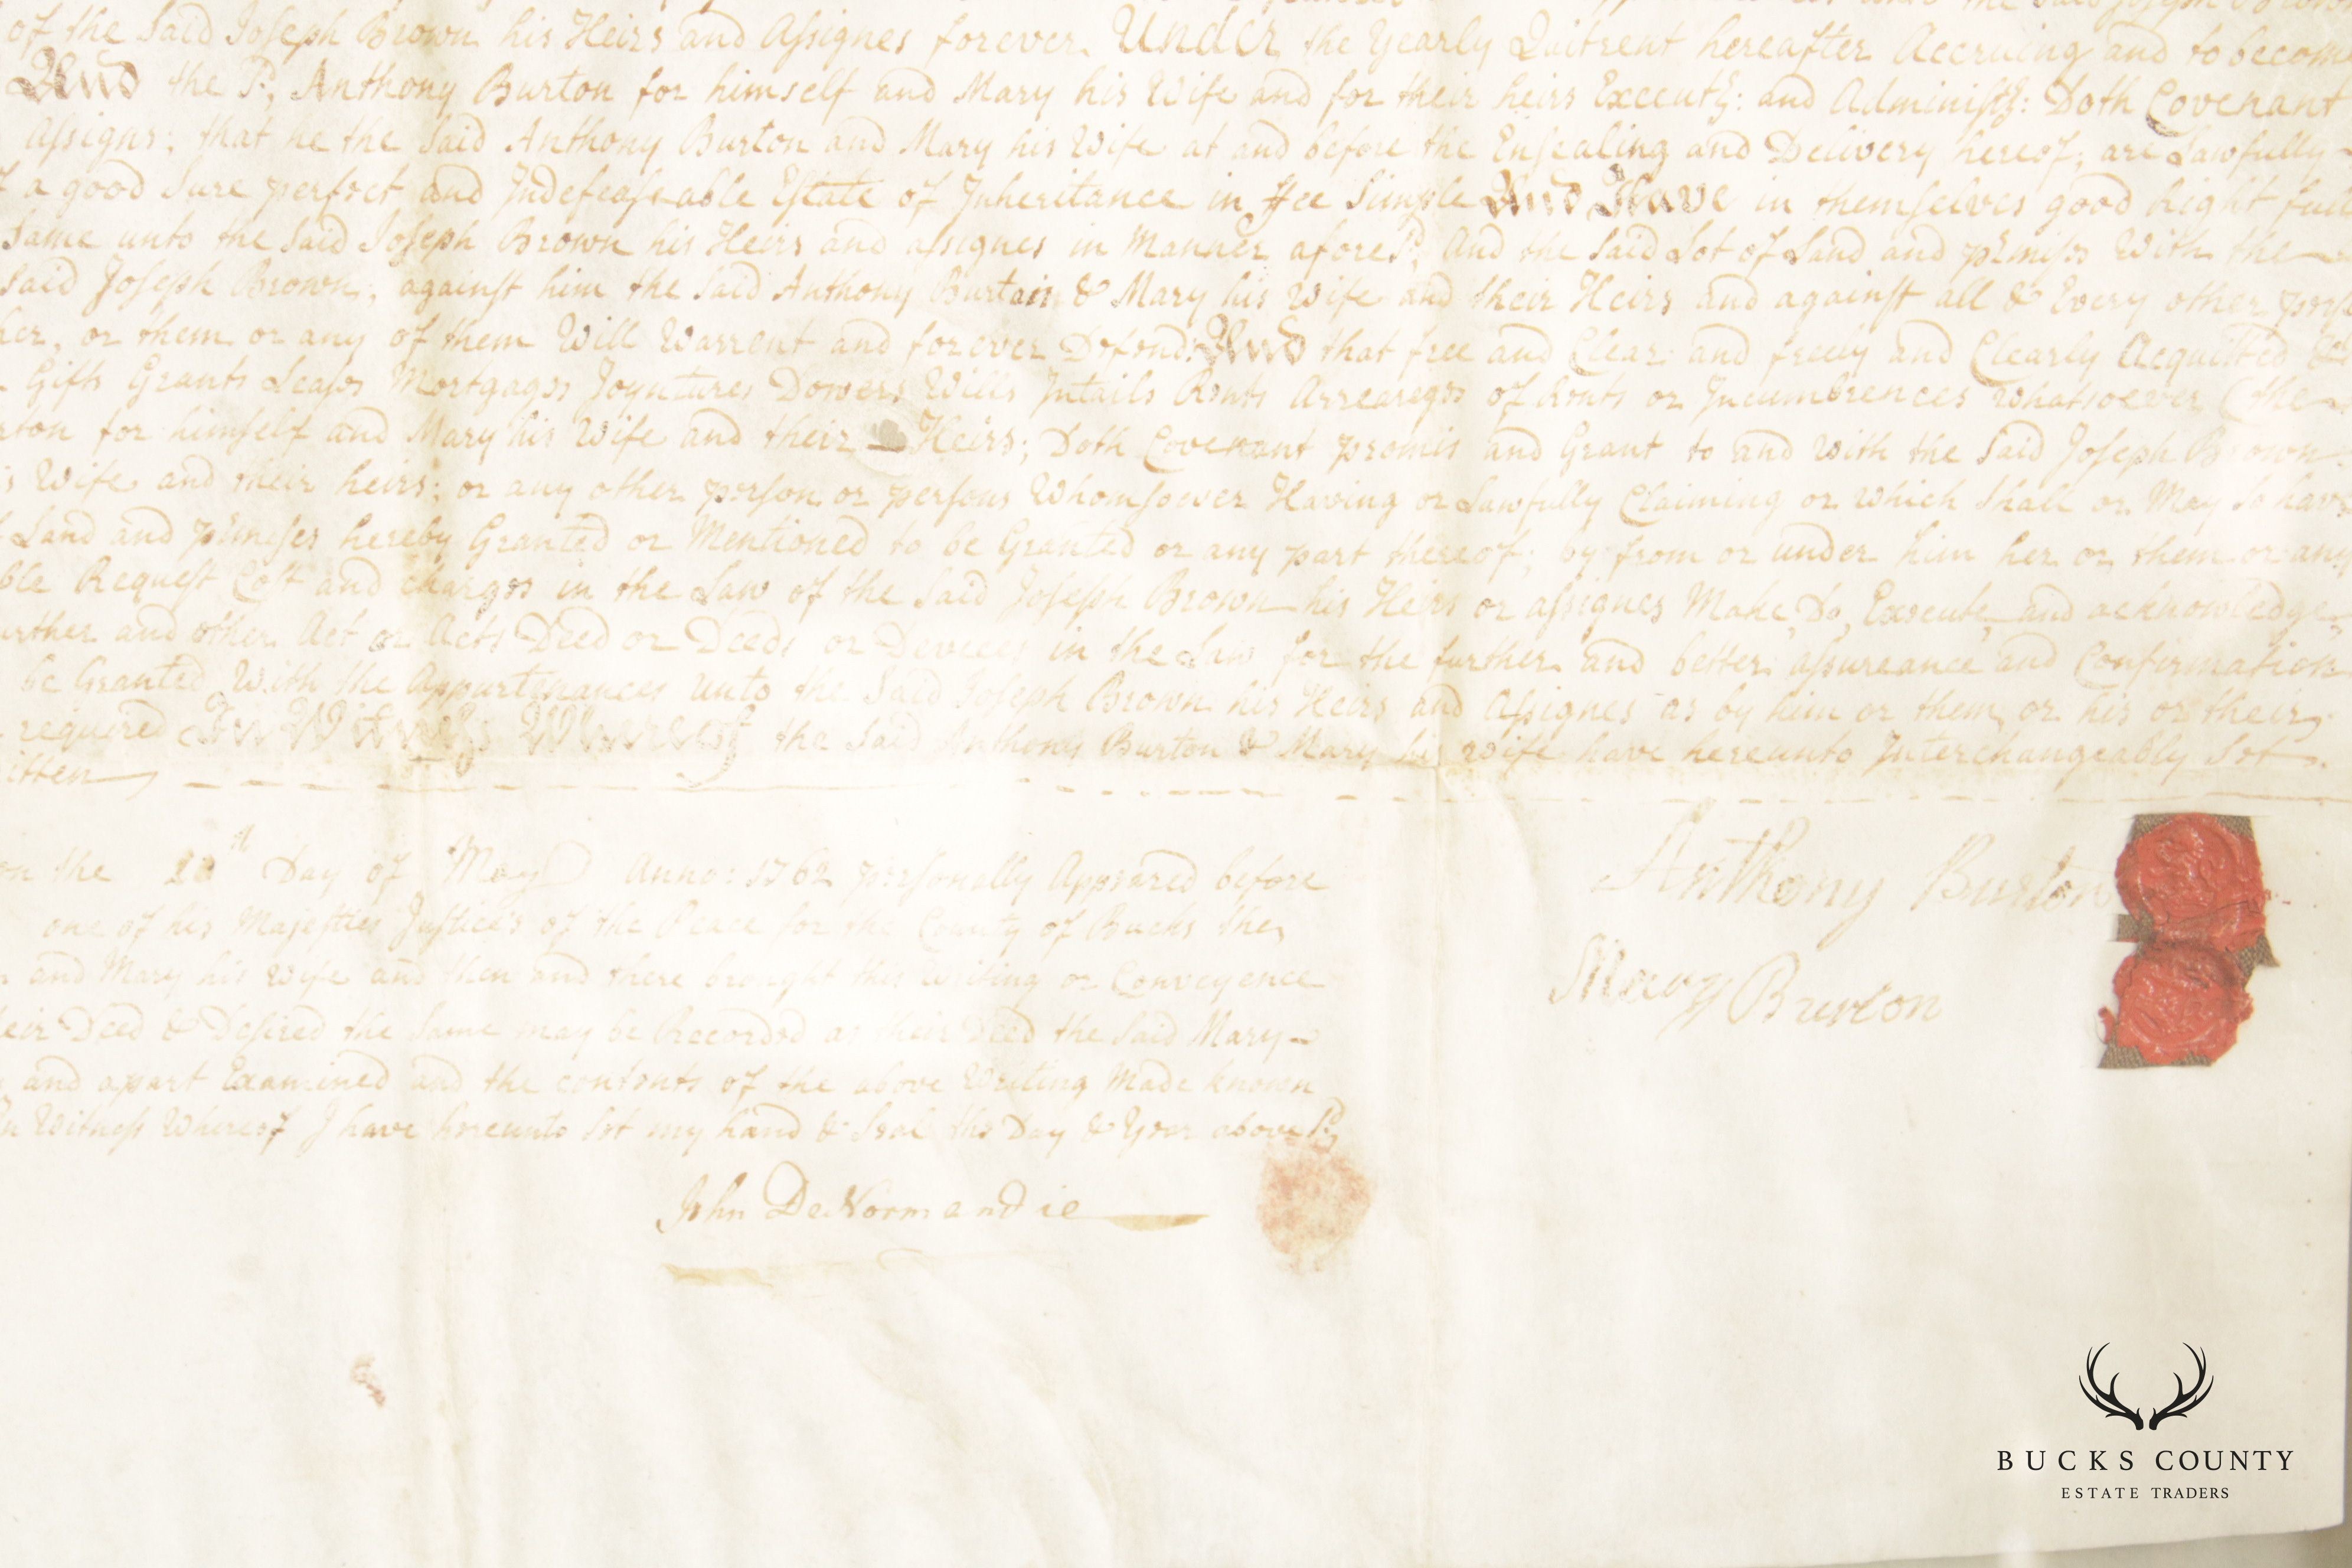 of the Said Joseph Brown his Heirs and Assignes forever. Under the Yearly Quitrent hereafter Accruing and to become
And the Sd. Anthony Burton for himself and Mary his Wife and for their heirs Executrs: and Administrs: Doth Covenant
Assigns; that he the Said Anthony Burton and Mary his Wife at and before the Ensealing and Delivery hereof, are Lawfully
a good Sure perfect and Indefeaseable Estate of Inheritance in ffee Simple And Have in themselves good Right full
Same unto the Said Joseph Brown his Heirs and assignes in Manner aforesd. And the Said Lot of Land and premises With the
Said Joseph Brown, against him the Said Anthony Burtain & Mary his Wife and their Heirs and against all & Every other
her, or them or any of them Will Warrent and forever Defend. And that free and Clear and freely and Clearly Acquitted &
Gifts Grants Leases Mortgages Joyntures Dowers Wills Intails Rents Arreareges of Rents or Incumbrences Whatsoever (the
rton for himself and Mary his Wife and their Heirs; Doth Covenant promis and Grant to and with the Said Joseph Brown
s Wife and their heirs; or any other person or persons Whomsoever Having or Lawfully Claiming or which Shall or May So have
Land and premises hereby Granted or Mentioned to be Granted or any part thereof; by from or under him her or them or any
ble Request Cost and charges in the Law of the Said Joseph Brown his Heirs or assignes Make, Do, Execute, and acknowledge
urther and other Act or Acts Deed or Deeds or Devices in the Law for the further and better assureance and Confirmation
be Granted With the Appurtinances unto the Said Joseph Brown his Heirs and Assignes as by him or them or his or their
required In Witness Whereof the Said Anthony Burton & Mary his wife have hereunto Interchangeably Set
itten
on the 20th Day of May Anno: 1762 personally Appeared before
one of his Majesties Justice's of the Peace for the County of Bucks the
and Mary his Wife and then and there brought this Writing or Conveyence
eir Deed & Desired the Same may be Recorded as their Deed the Said Mary
and apart Examined and the contents of the above Writing Made known
In Witness Whereof I have hereunto Set my hand & Seal the Day & Year above Sd
Anthony Burton
Mary Burton
John DeNormandie
BUCKS COUNTY
ESTATE TRADERS